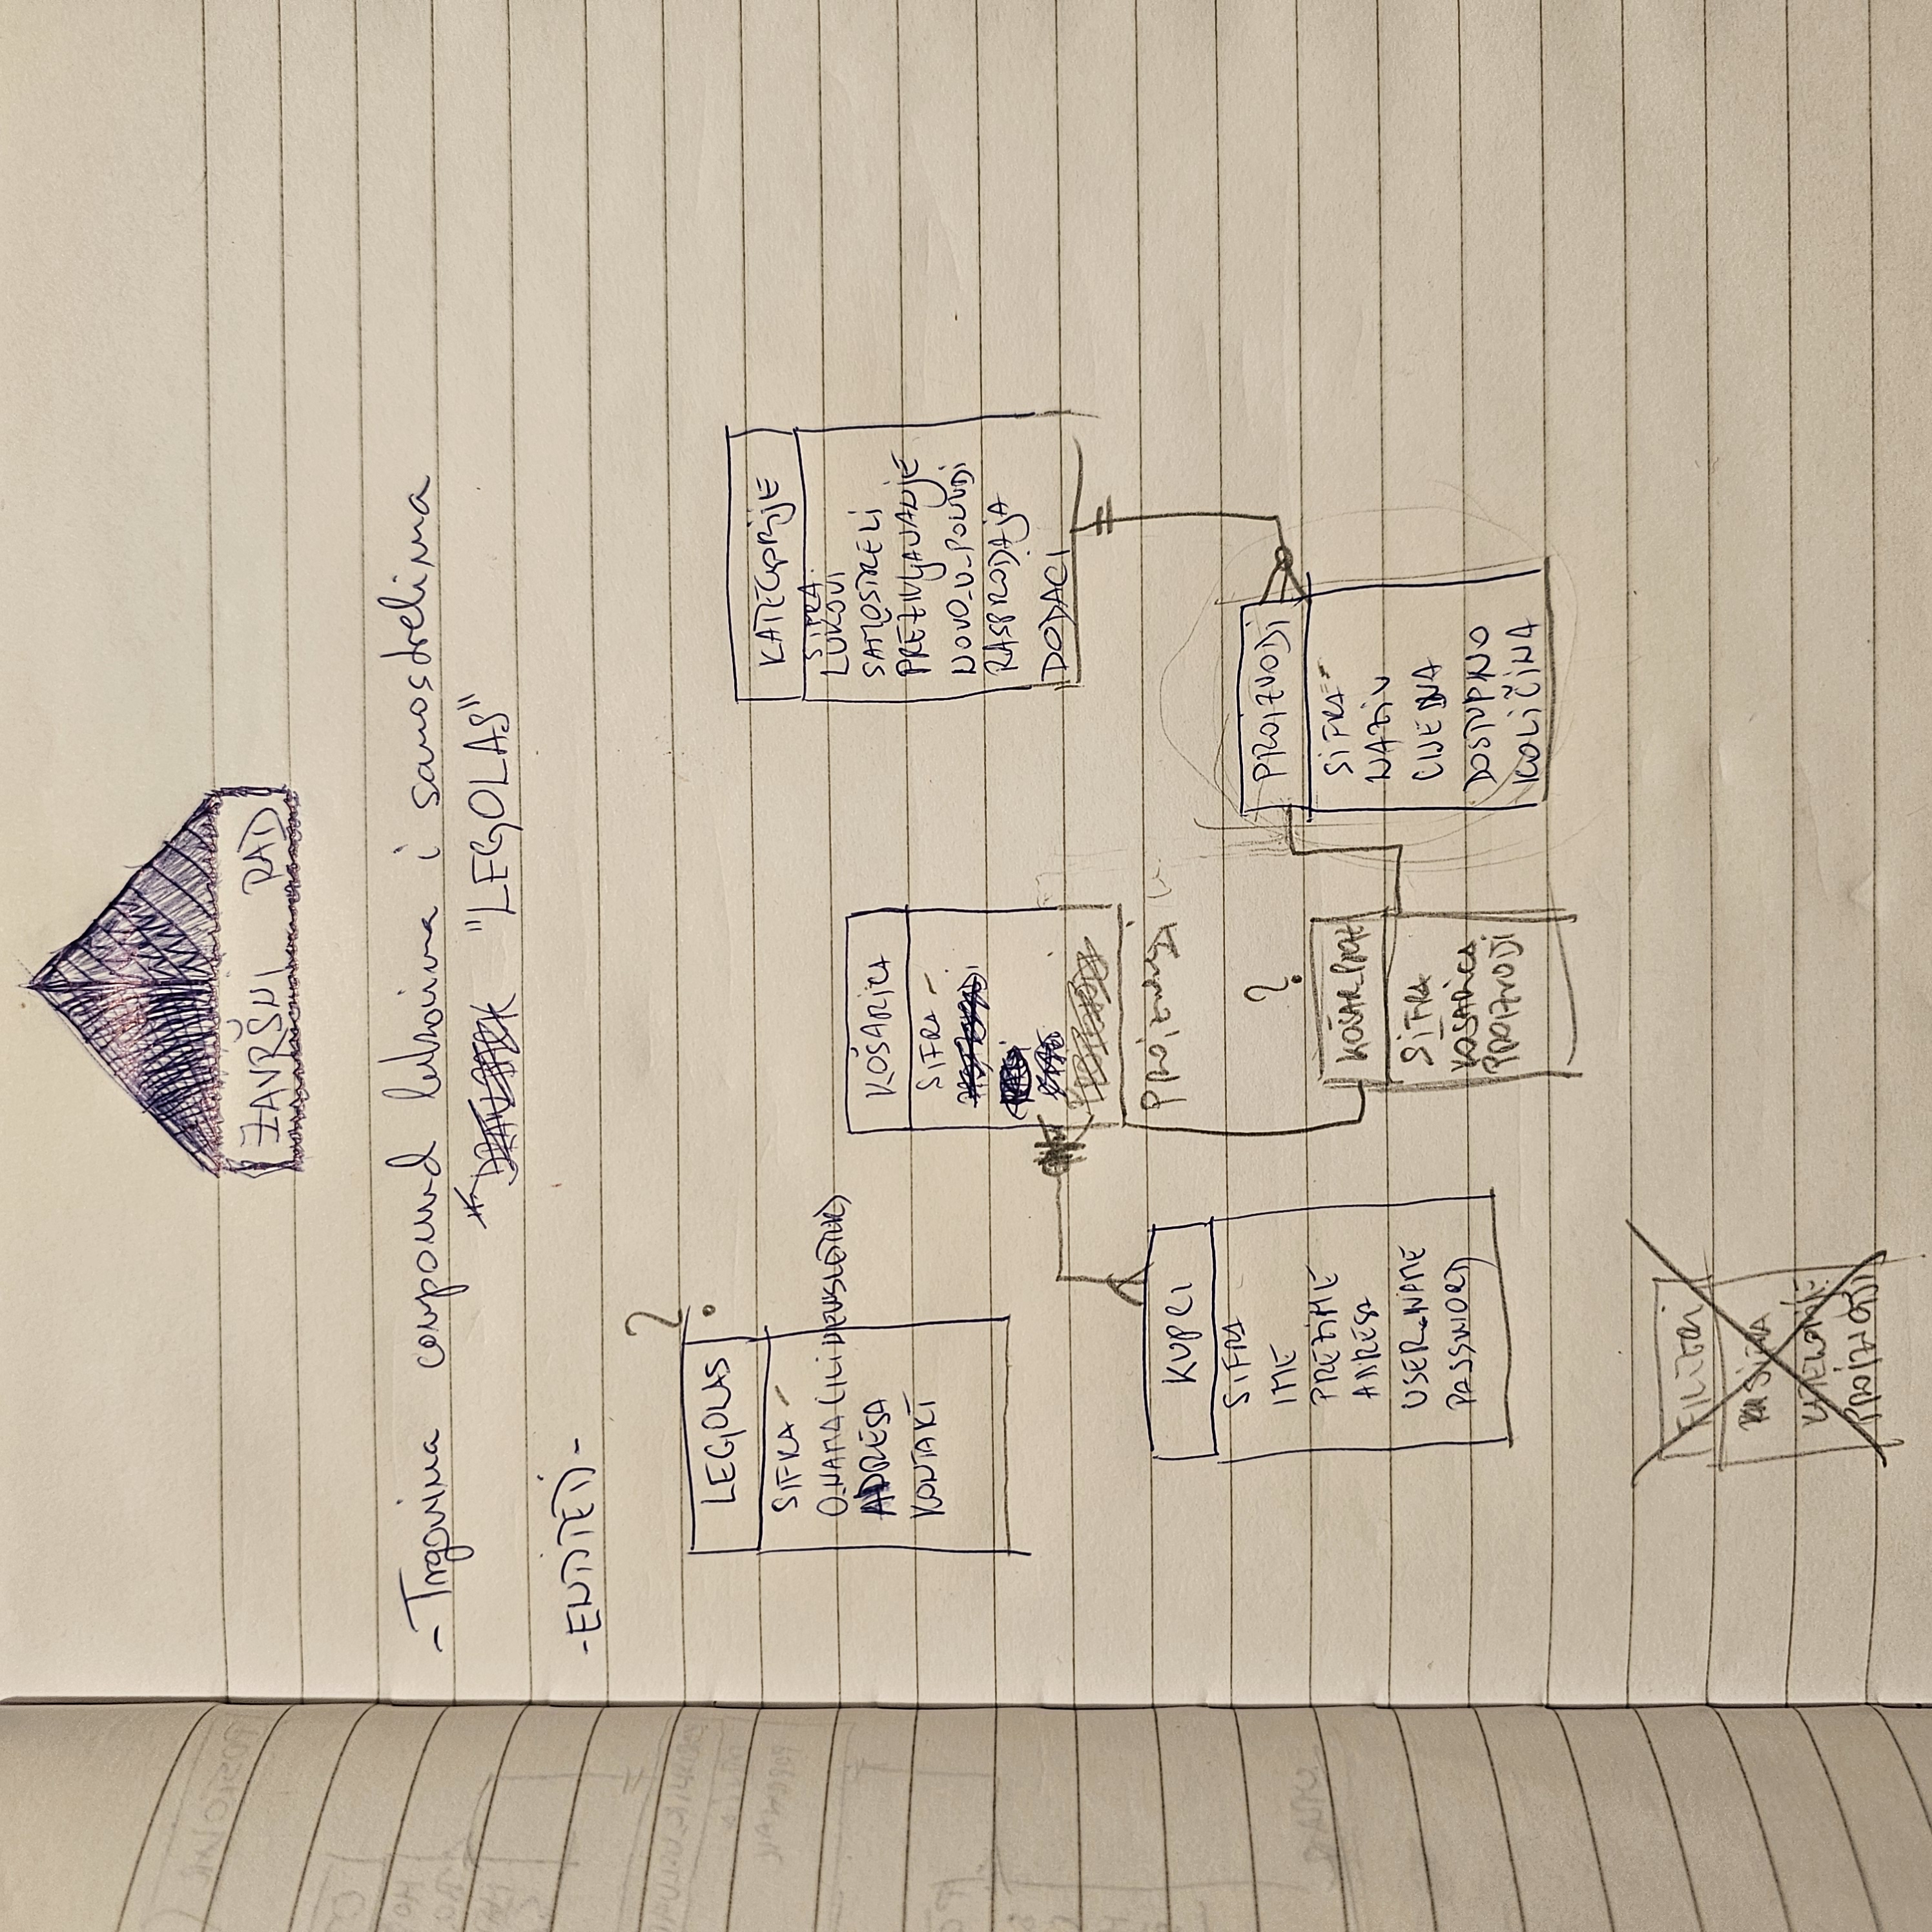 ZAVRŠNI RAD
- Trgovina compound lukovima i samostrelima
"LEGOLAS"
- ENTITETI -
?
LEGOLAS
SIFRA -
O_NAMA (ILI NEWSLETTER)
ADRESA
KONTAKT
KATEGORIJE
SIFRA
LUKOVI
SAMOSTRELI
PREŽIVLJAVANJE
NOVO_U_PONUDI
RASPRODAJA
DODACI
KOŠARICA
SIFRA -
PROIZVODI
KUPCI
SIFRA
IME
PREZIME
ADRESA
USER_NAME
PASSWORD
?
KOŠAR_PROIZ
SIFRA
KOŠARICA
PROIZVODI
PROIZVODI
SIFRA -
NAZIV
CIJENA
DOSTUPNO
KOLIČINA
FILTERI
SIFRA
KATEGORIJE
PROIZVODI